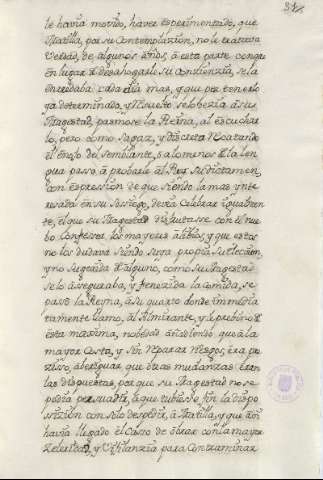 le havia movido, haver experimentado, que
Matilla, por su Contemplazion, no le tratava
verdad, de algunos años, à esta parte con que
en lugar de desahogarle su Conzienzia, se la
enredaba cada dia mas, y que por tenerlo
ya determinado, y resuelto se lo dezia à su
Magestad, pasmose la Reina, al escuchar
lo, pero como sagaz, y discreta recatando
el enojo del semblante, ò alomenos de la len
gua paso à probarle al Rey su dictamen,
con expression de que siendo la mas ynte
resada en su sosiego, devia celebrar igualmen
te, el que su Magestad disfrutasse con el nue
bo Confesor, los mayores alibios, y que estos
no los dudava siendo suya propia, su eleccion,
y no sugerida de alguno, como su Magestad
se lo aseguraba, y fenezida la comida, se
paso la Reyna, à su quarto donde immedia
tamente llamo, al Almirante, y le previno de
esta maxima, no añadiendo que à la
mayor costa, y sin reparar riesgos, era pre
zisso, aberiguar que otras mudanzas eran
las dispuestas, por que su Magestad no se
podia persuadir, à que tubiesse fin la dispo
sizion con solo despedir, à Matilla, y que àun
havia llegado el caso de obrar con la mayor
zeleridad, y vigilanzia para contraminar